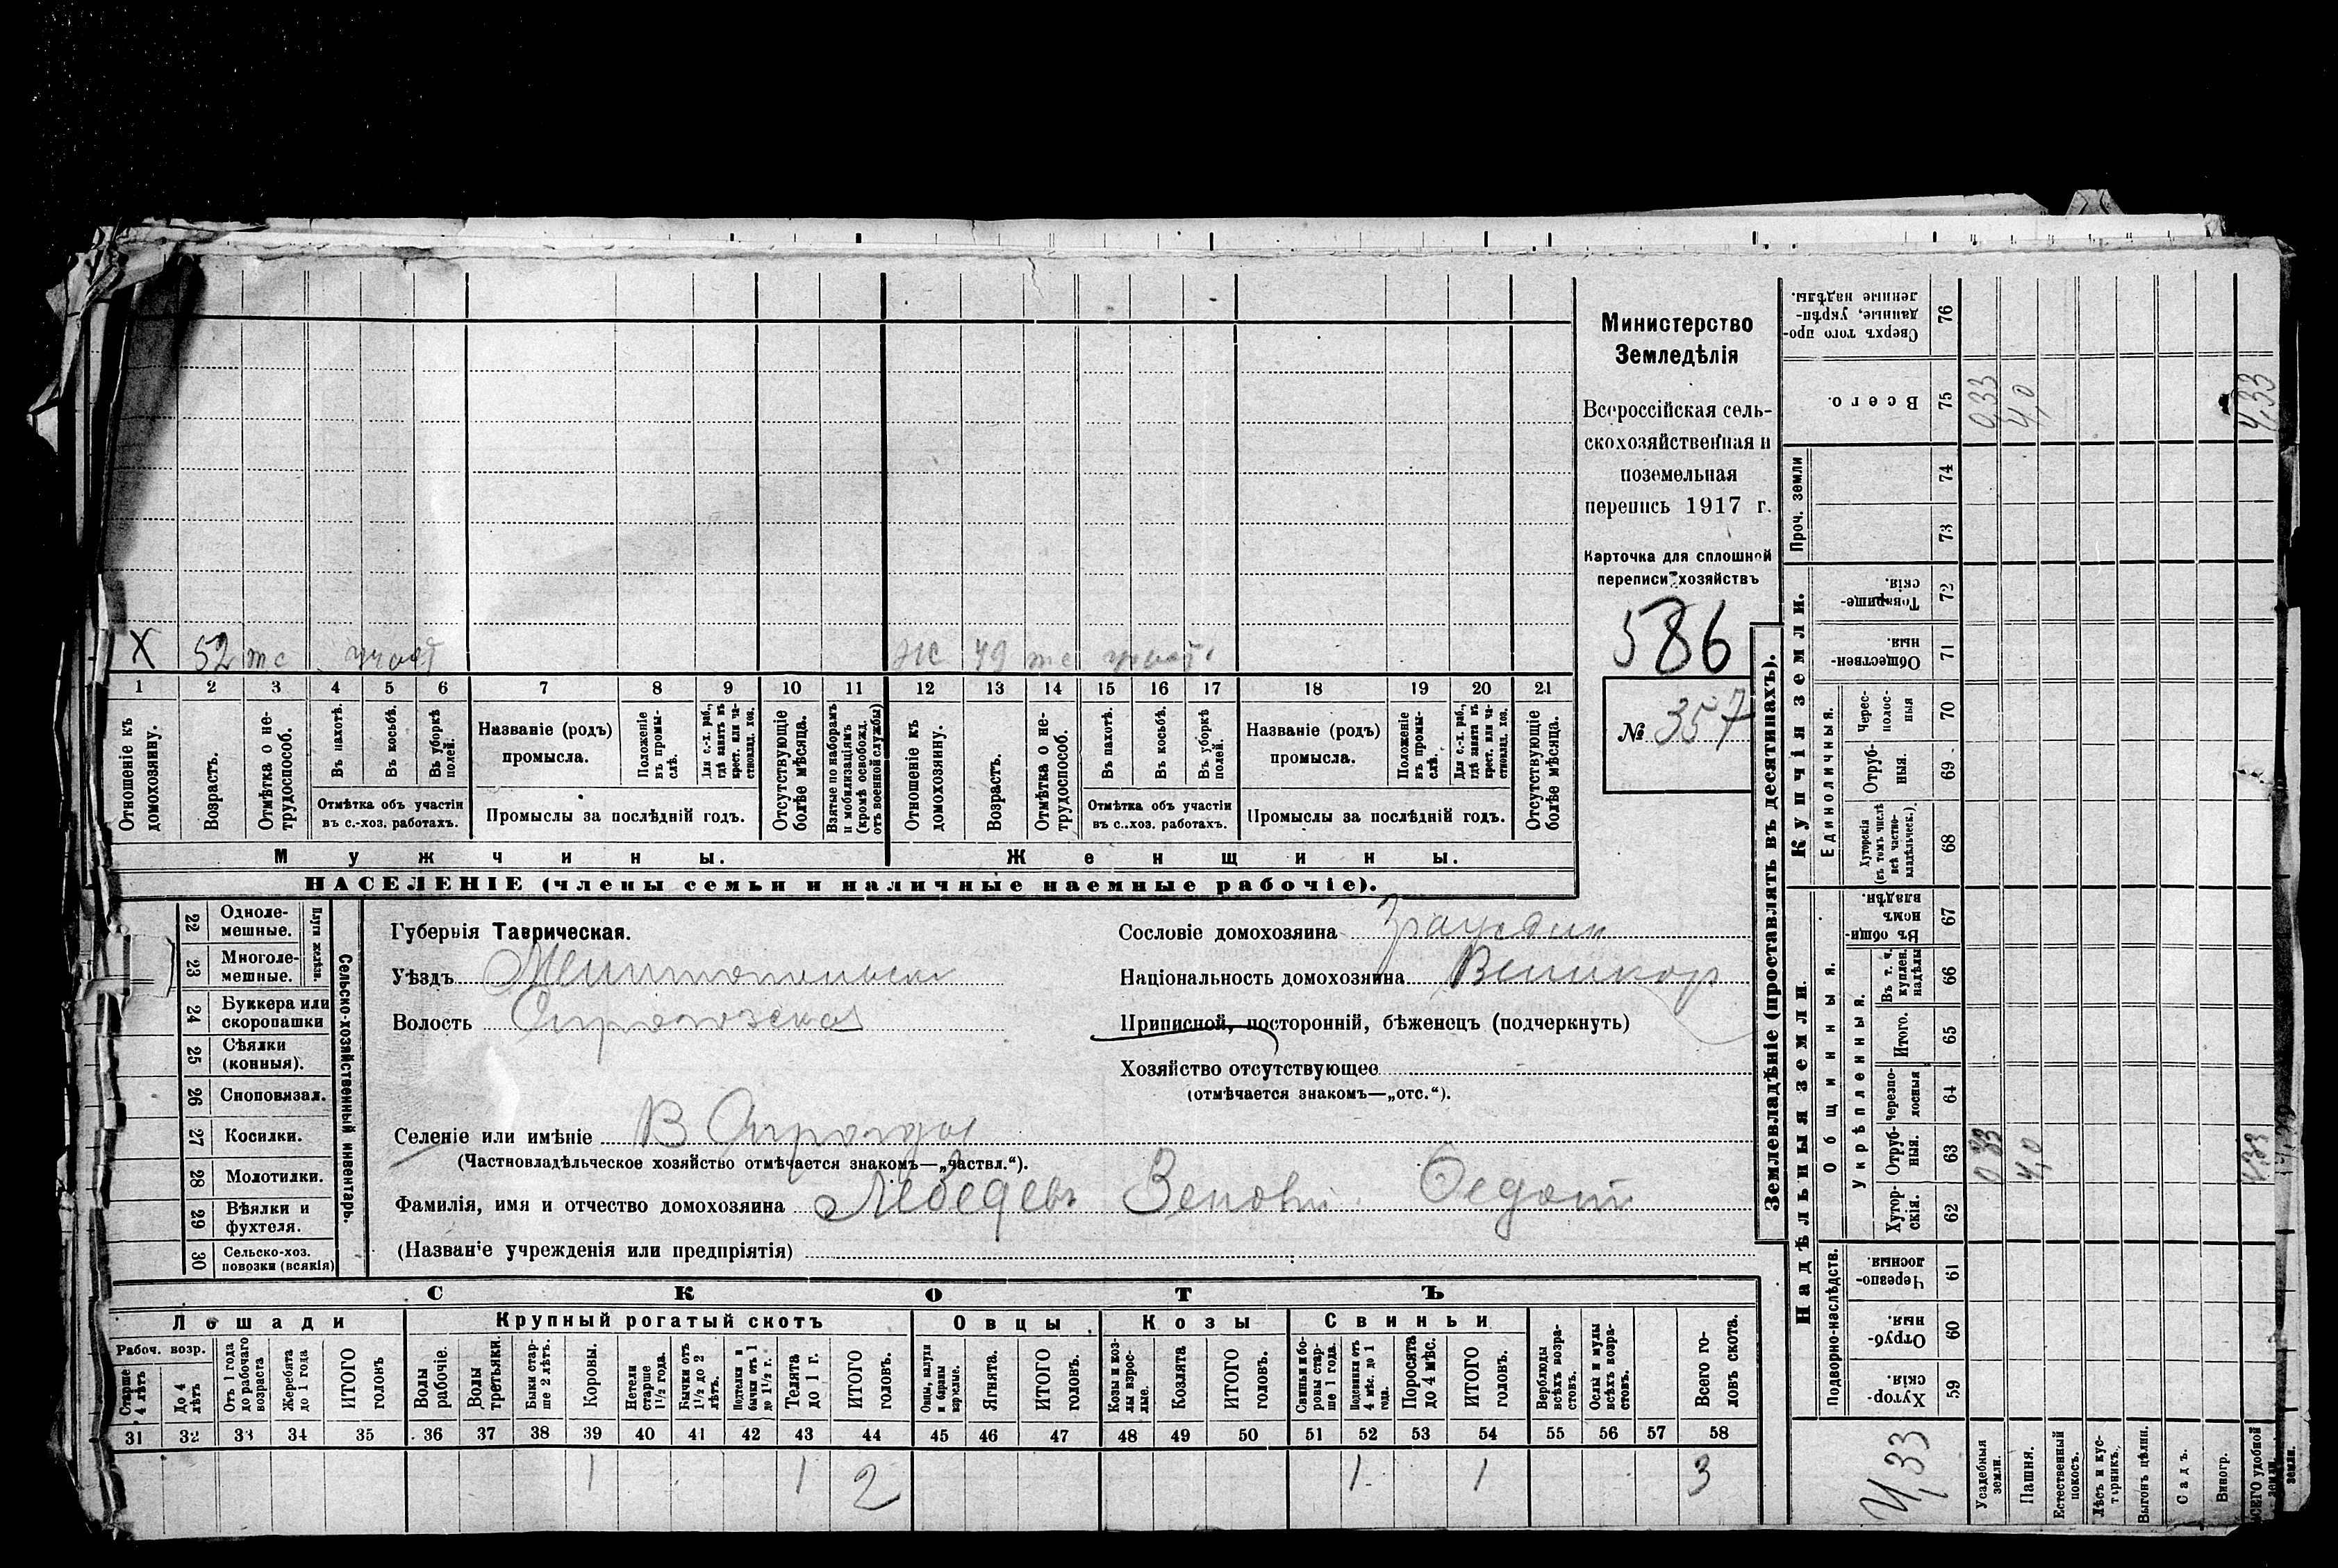 Министерство
Земледѣлія
Всероссійская сель-
скохозяйственная и
поземельная
перепись 1917 г.
Карточка для сплошной
переписи хозяйствъ
586
№ 357
X 52 учаот
Ж 49
1 2 3 4 5 6 7 8 9 10 11 12 13 14 15 16 17 18 19 20 21
Отношеніе къ домохозяину.
Возрастъ.
Отмѣтка о не-трудоспособ.
Въ пахотѣ.
Въ косьбѣ.
Въ уборкѣ полей.
Отмѣтка объ участіи
въ с.-хоз. работахъ.
Названіе (родъ)
промысла.
Положеніе въ промы-слѣ.
Для с.-х. раб., гдѣ занятъ въ крест. или ча-стновлад. хоз.
Промыслы за послѣдній годъ.
Отсутствующіе болѣе мѣсяца.
Взятые по наборамъ и мобилизаціямъ (кромѣ освобожд. отъ военной службы)
Отношеніе къ домохозяину.
Возрастъ.
Отмѣтка о не-трудоспособ.
Въ пахотѣ.
Въ косьбѣ.
Въ уборкѣ полей.
Отмѣтка объ участіи
въ с.-хоз. работахъ.
Названіе (родъ)
промысла.
Положеніе въ промы-слѣ.
Для с.-х. раб., гдѣ занята въ крест. или ча-стновлад. хоз.
Промыслы за послѣдній годъ.
Отсутствующіе болѣе мѣсяца.
Мужчины. Женщины.
НАСЕЛЕНІЕ (члены семьи и наличные наемные рабочіе).
22 Одноле-мешные.
23 Многоле-мешные.
Плуги желѣзн.
24 Буккера или скоропашки
25 Сѣялки (конныя).
26 Сноповязал.
27 Косилки.
28 Молотилки.
29 Вѣялки и фухтеля.
30 Сельско-хоз. повозки (всякія)
Сельско-хозяйственный инвентарь.
Губернія Таврическая.
Уѣздъ Мелитопольскі
Волость
Сословіе домохозяина
Національность домохозяина Великор
Приписной, посторонній, бѣженецъ (подчеркнуть)
Хозяйство отсутствующее
(отмѣчается знакомъ—„отс.“).
Селеніе или имѣніе В
(Частновладѣльческое хозяйство отмѣчается знакомъ—„частвл.“).
Фамилія, имя и отчество домохозяина Лебедевъ Зенови. Ѳедот
(Названіе учрежденія или предпріятія)
СКОТЪ
Лошади Крупный рогатый скотъ Овцы Козы Свиньи
Рабоч. возр.
Старше 4 лѣтъ
До 4 лѣтъ
Отъ 1 года до рабочаго возраста
Жеребята до 1 года
ИТОГО головъ
Волы рабочіе.
Волы третьяки.
Быки стар-ше 2 лѣтъ.
Коровы.
Нетели старше 1½ года.
Бычки отъ 1½ до 2 лѣтъ.
Подтелки и бычки отъ 1 до 1½ г.
Телята до 1 г.
ИТОГО головъ.
Овцы, валухи и бараны взрослые.
Ягнята.
ИТОГО головъ.
Козы и коз-лы взрос-лые.
Козлята
ИТОГО головъ.
Свиньи и бо-ровы стар-ше 1 года.
Подсвинки отъ 4 мѣс. до 1 года.
Поросята до 4 мѣс.
ИТОГО головъ.
Верблюды всѣхъ возра-стовъ.
Ослы и мулы всѣхъ возра-стовъ.
Всего го-ловъ скота.
31 32 33 34 35 36 37 38 39 40 41 42 43 44 45 46 47 48 49 50 51 52 53 54 55 56 57 58
1 1 2 1 1 3
Землевладѣніе (проставлять въ десятинахъ).
Надѣльныя земли. Купчія земли.
Подворно-наслѣдств.
Общинныя.
Укрѣпленныя.
Единоличныя.
Проч. земли
Хутор-скія. 59
Отруб-ныя. 60
Черезпо-лосныя. 61
Хутор-скія. 62
Отруб-ныя. 63
Черезпо-лосныя 64
Итого. 65
Въ т. ч. куплен. надѣлы 66
Въ общи-номъ владѣн. 67
Хуторскія (въ томъ числѣ всѣ частно-владѣльческ.) 68
Отруб-ныя. 69
Черес-полос-ныя 70
Обществен-ныя. 71
Товарище-скія. 72
73
74
Всего. 75
Сверхъ того про-данные, укрѣп-ленные надѣлы. 76
4,33
Усадебныя земли. 0,33 0,33
Пашня. 4,0 4,0
Естественный покосъ.
Лѣсъ и кус-тарникъ.
Выгонъ цѣлин.
Садъ.
Виногр.
ВСЕГО удобной земли 4,33 4,33